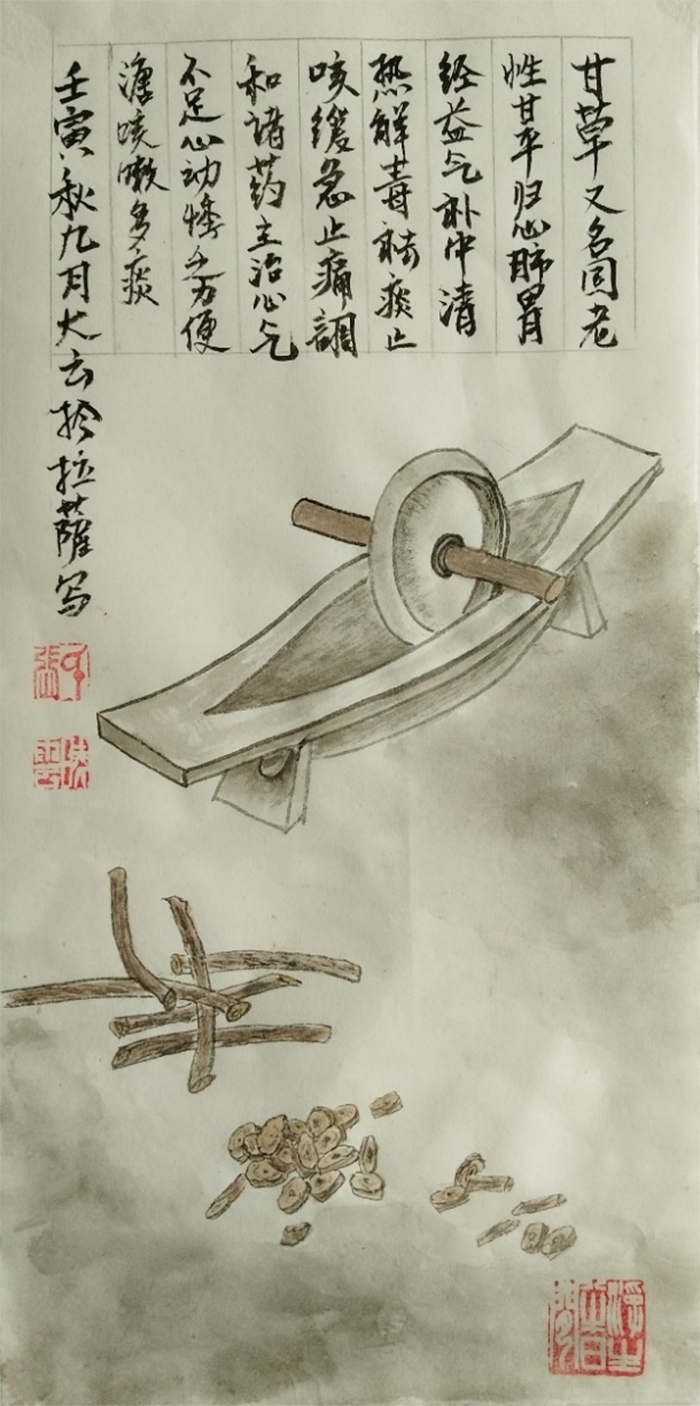 甘草又名国老
性甘平归心肺胃
经益气补中清
热解毒祛痰止
咳缓急止痛調
和诸药主治心气
不足心动悸乏力便
溏咳嗽多痰
壬寅秋九月大云於拉薩写